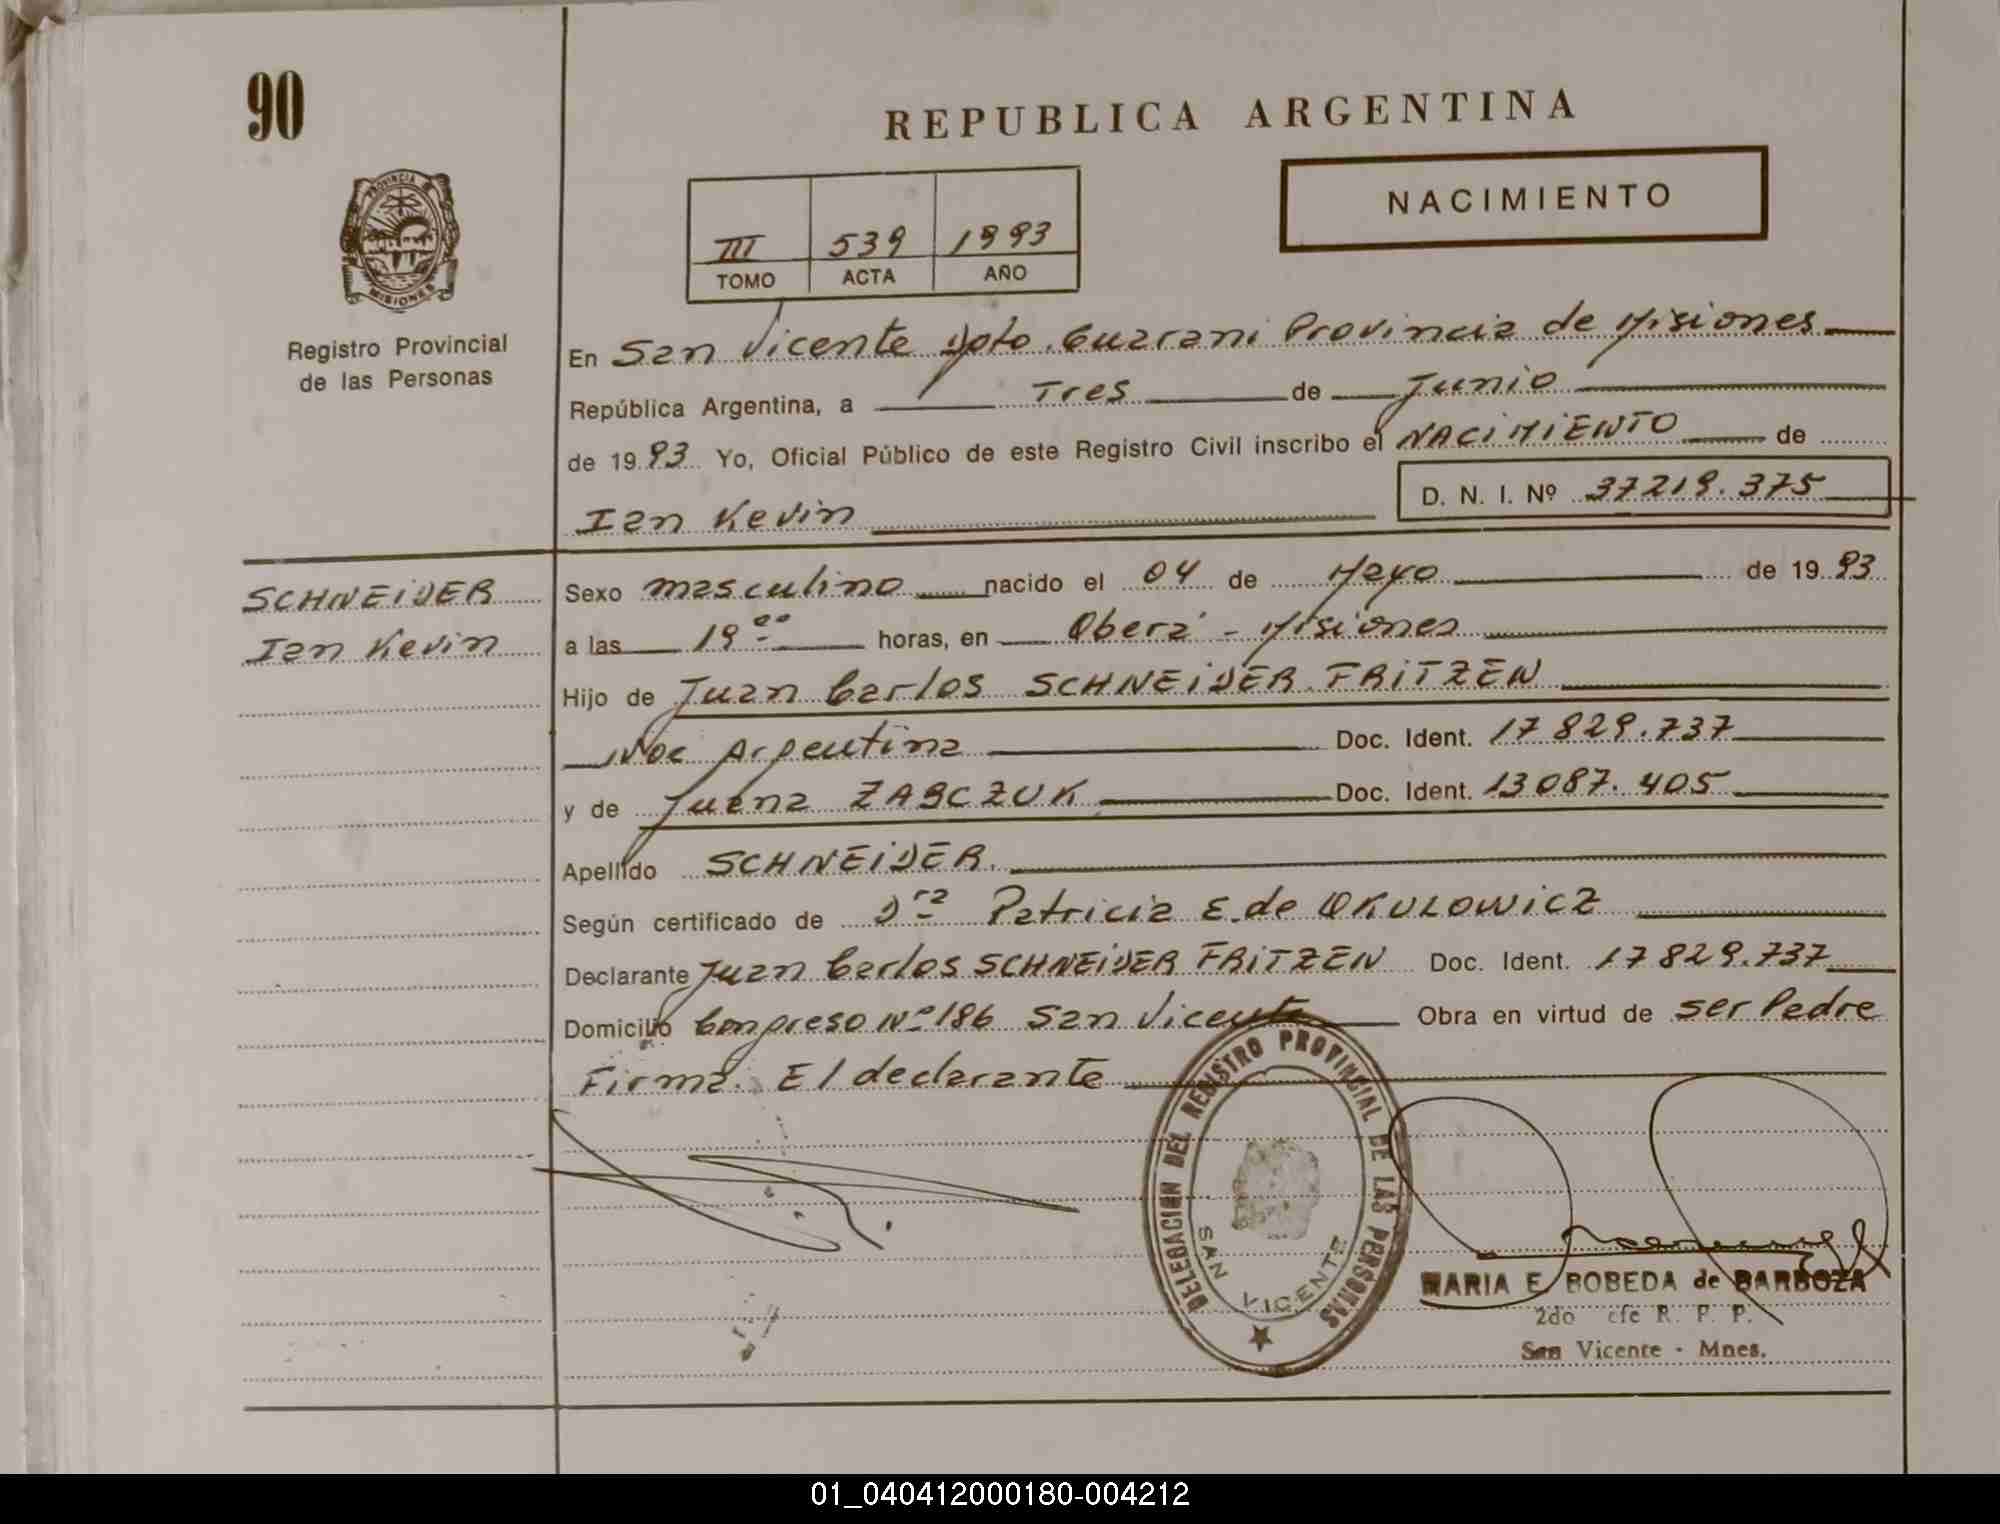 90
REPUBLICA ARGENTINA
NACIMIENTO
PROVINCIA DE
MISIONES
III 539 1993
TOMO ACTA AÑO
Registro Provincial
de las Personas
En San Vicente Dpto. Guarani Provincia de Misiones
República Argentina, a Tres de Junio
de 1993 Yo, Oficial Público de este Registro Civil inscribo el NACIMIENTO de
D. N. I. Nº 37219.375
Ian Kevin
SCHNEIDER
Ian Kevin
Sexo masculino nacido el 04 de Mayo de 1993
a las 19 00 horas, en Oberá - Misiones
Hijo de Juan Carlos SCHNEIDER FRITZEN
Nac Argentina Doc. Ident. 17829.737
y de Juana ZABCZUK Doc. Ident. 13087.405
Apellido SCHNEIDER.
Según certificado de Dra Patricia E. de OKULOWICZ
Declarante Juan Carlos SCHNEIDER FRITZEN Doc. Ident. 17829.737
Domicilio Congreso Nº 186 San Vicente Obra en virtud de ser Padre
Firma. El declarante
DELEGACION DEL REGISTRO PROVINCIAL DE LAS PERSONAS
SAN VICENTE
MARIA E. BOBEDA de BARBOZA
2do efe R. P. P.
San Vicente - Mnes.
01_040412000180-004212